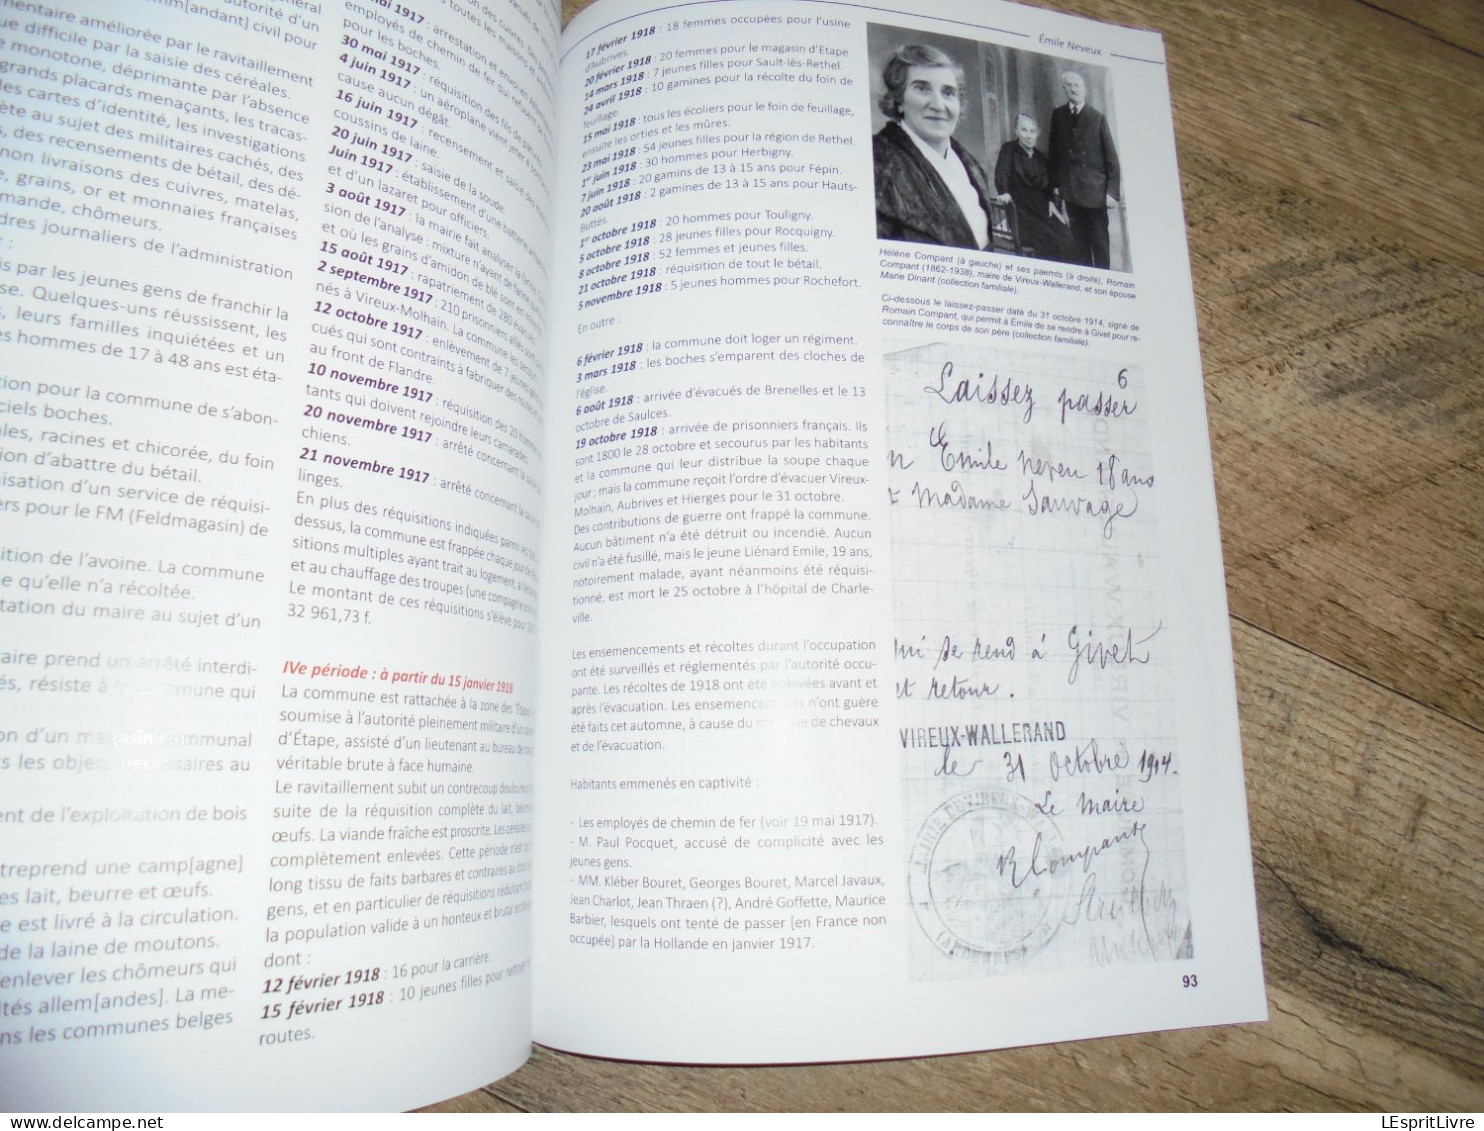 mentaire améliorée par le ravitaillement
ue difficile par la saisie des céréales.
e monotone, déprimante par l'absence
grands placards menaçants, les tracas-
des cartes d'identité, les investigations
ète au sujet des militaires cachés, des
s, des recensements de bétail, des dé-
non livraisons des cuivres, matelas,
e, grains, or et monnaies françaises
mande, chômeurs.
dres journaliers de l'administration
is par les jeunes gens de franchir la
se. Quelques-uns réussissent, les
s, leurs familles inquiétées et un
s hommes de 17 à 48 ans est éta-
tion pour la commune de s'abon-
ciels boches.
ales, racines et chicorée, du foin
ion d'abattre du bétail.
nisation d'un service de réquisi-
ers pour le FM (Feldmagasin) de
sition de l'avoine. La commune
e qu'elle n'a récoltée.
tation du maire au sujet d'un
aire prend un arrêté interdi-
és, résiste à la commune qui
on d'un magasin communal
s les objets nécessaires au
ent de l'exploitation de bois
treprend une camp[agne]
es lait, beurre et œufs.
e est livré à la circulation.
de la laine de moutons.
'enlever les chômeurs qui
ités allem[andes]. La me-
ns les communes belges
mai 1917 : arrestation et envoi en
employés de chemin de fer qui refusent de
pour les boches.
30 mai 1917 : réquisition des fils de
4 juin 1917 : un aéroplane vient jeter
cause aucun dégât.
16 juin 1917 : recensement et saisie des
coussins de laine.
20 juin 1917 : saisie de la soude.
Juin 1917 : établissement d'une batterie
et d'un lazaret pour officiers.
3 août 1917 : la mairie fait analyser la farine.
sion de l'analyse : mixture n'ayant de farine que
et où les grains d'amidon de blé sont en
15 août 1917 : rapatriement de 280 évacués.
2 septembre 1917 : 210 prisonniers alliés sont
nés à Vireux-Molhain. La commune les
12 octobre 1917 : enlèvement de 7 jeunes gens
cués qui sont contraints à fabriquer des
au front de Flandre.
10 novembre 1917 : réquisition des 20 hommes
tants qui doivent rejoindre leurs camarades.
20 novembre 1917 : arrêté concernant la
chiens.
21 novembre 1917 : arrêté concernant la
linges.
En plus des réquisitions indiquées parmi les
dessus, la commune est frappée chaque jour de
sitions multiples ayant trait au logement, à
et au chauffage des troupes (une compagnie
Le montant de ces réquisitions s'élève pour
32 961,73 f.
IVe période : à partir du 15 janvier 1918
La commune est rattachée à la zone des "Étapes"
soumise à l'autorité pleinement militaire d'un
d'Étape, assisté d'un lieutenant au bureau de
véritable brute à face humaine.
Le ravitaillement subit un contrecoup douloureux
suite de la réquisition complète du lait, beurre
œufs. La viande fraîche est proscrite. Les céréales sont
complètement enlevées. Cette période n'est qu'un
long tissu de faits barbares et contraires au droit des
gens, et en particulier de réquisitions réduisant toute
la population valide à un honteux et brutal esclavage
dont :
12 février 1918 : 16 pour la carrière.
15 février 1918 : 10 jeunes filles pour nettoyer les
routes.
Émile Neveux
17 février 1918 : 18 femmes occupées pour l'usine
d'Aubrives.
20 février 1918 : 20 femmes pour le magasin d'Etape.
14 mars 1918 : 7 jeunes filles pour Sault-lès-Rethel.
24 avril 1918 : 10 gamines pour la récolte du foin de
feuillage.
15 mai 1918 : tous les écoliers pour le foin de feuillage,
ensuite les orties et les mûres.
23 mai 1918 : 54 jeunes filles pour la région de Rethel.
1er juin 1918 : 30 hommes pour Herbigny.
7 juin 1918 : 20 gamins de 13 à 15 ans pour Fépin.
20 août 1918 : 2 gamines de 13 à 15 ans pour Hauts-
Buttés.
1er octobre 1918 : 20 hommes pour Touligny.
5 octobre 1918 : 28 jeunes filles pour Rocquigny.
8 octobre 1918 : 52 femmes et jeunes filles.
21 octobre 1918 : réquisition de tout le bétail.
5 novembre 1918 : 5 jeunes hommes pour Rochefort.
En outre :
6 février 1918 : la commune doit loger un régiment.
3 mars 1918 : les boches s'emparent des cloches de
l'église.
6 août 1918 : arrivée d'évacués de Brenelles et le 13
octobre de Saulces.
19 octobre 1918 : arrivée de prisonniers français. Ils
sont 1800 le 28 octobre et secourus par les habitants
et la commune qui leur distribue la soupe chaque
jour ; mais la commune reçoit l'ordre d'évacuer Vireux-
Molhain, Aubrives et Hierges pour le 31 octobre.
Des contributions de guerre ont frappé la commune.
Aucun bâtiment n'a été détruit ou incendié. Aucun
civil n'a été fusillé, mais le jeune Liénard Emile, 19 ans,
notoirement malade, ayant néanmoins été réquisi-
tionné, est mort le 25 octobre à l'hôpital de Charle-
ville.
Les ensemencements et récoltes durant l'occupation
ont été surveillés et réglementés par l'autorité occu-
pante. Les récoltes de 1918 ont été enlevées avant et
après l'évacuation. Les ensemencements n'ont guère
été faits cet automne, à cause du manque de chevaux
et de l'évacuation.
Habitants emmenés en captivité :
- Les employés de chemin de fer (voir 19 mai 1917).
- M. Paul Pocquet, accusé de complicité avec les
jeunes gens.
- MM. Kléber Bouret, Georges Bouret, Marcel Javaux,
Jean Charlot, Jean Thraen (?), André Goffette, Maurice
Barbier, lesquels ont tenté de passer [en France non
occupée] par la Hollande en janvier 1917.
Hélène Compant (à gauche) et ses paernts (à droite), Romain
Compant (1862-1938), maire de Vireux-Wallerand, et son épouse
Marie Dinant (collection familiale).
Ci-dessous le laissez-passer daté du 31 octobre 1914, signé de
Romain Compant, qui permit à Émile de se rendre à Givet pour re-
connaître le corps de son père (collection familiale).
6
Laissez passer
n Emile neveu 18 ans
Madame Sauvage
qui se rend à Givet
et retour.
VIREUX-WALLERAND
le 31 Octobre 1914.
Le Maire
R Compant
93
LEspritLivre